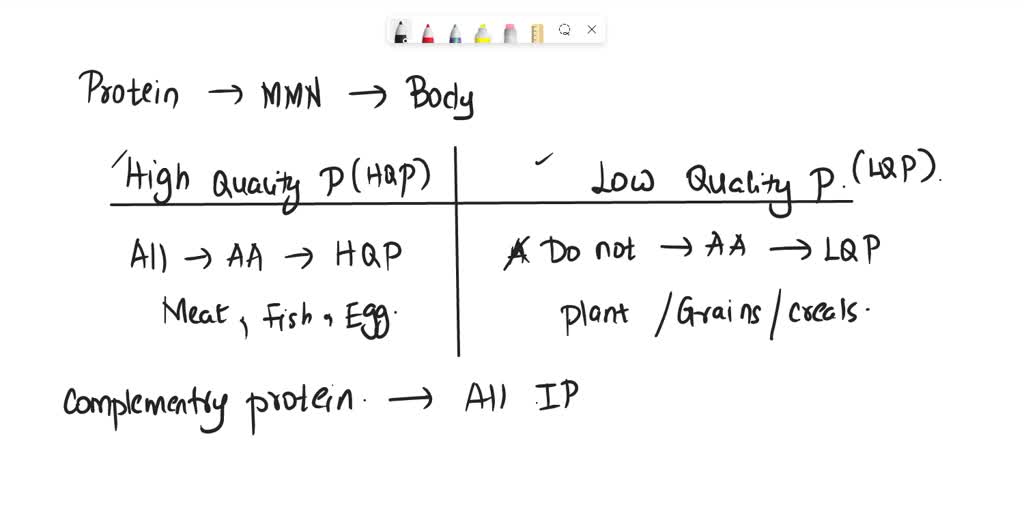 Protein → MMN → Body
High Quality P (HQP)
Low Quality P. (LQP).
All → AA → HQP
Do not → AA → LQP
Meat, Fish, Egg.
Plant / Grains / Creals.
Complementry protein. → All IP